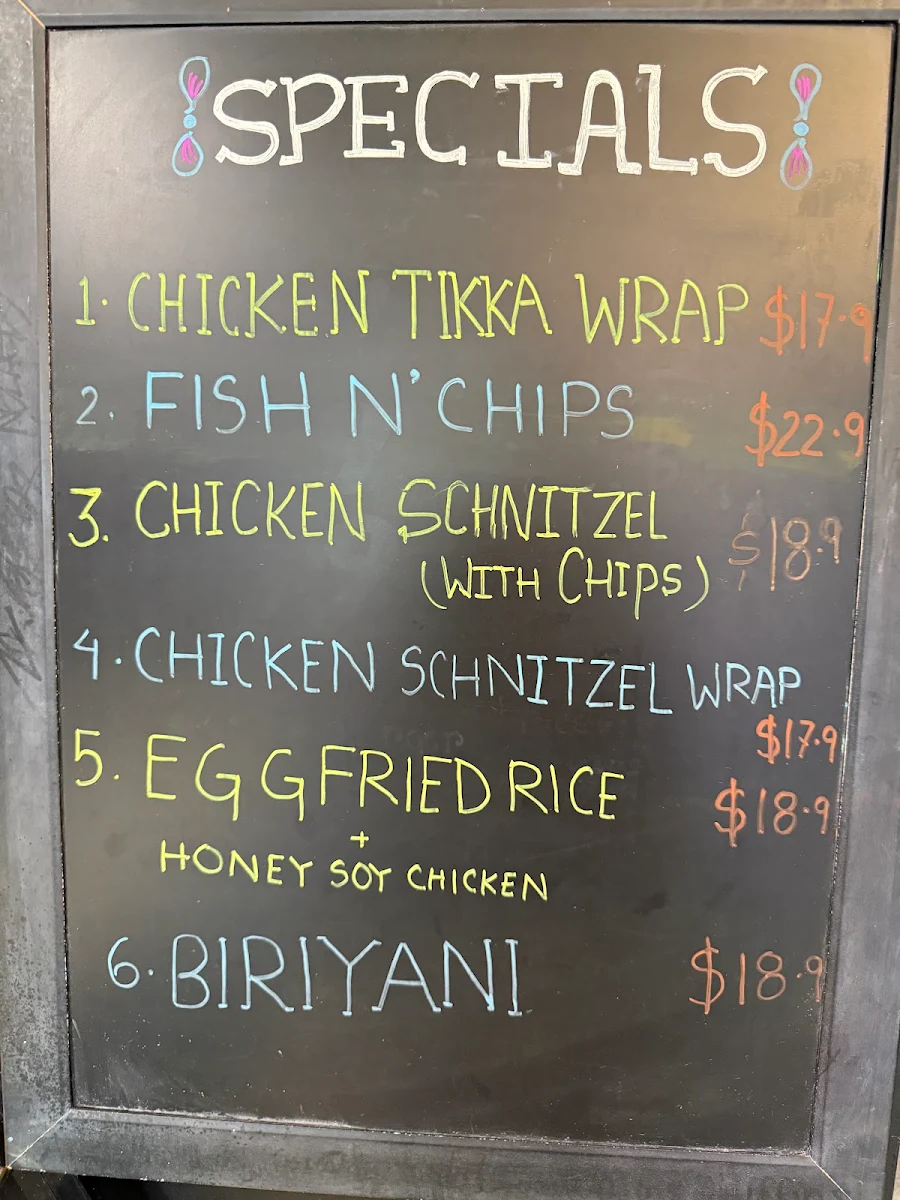 SPECIALS
1. CHICKEN TIKKA WRAP $17.9
2. FISH N' CHIPS $22.9
3. CHICKEN SCHNITZEL
(WITH CHIPS) $18.9
4. CHICKEN SCHNITZEL WRAP
$17.9
5. EGG FRIED RICE $18.9
+
HONEY SOY CHICKEN
6. BIRIYANI $18.9